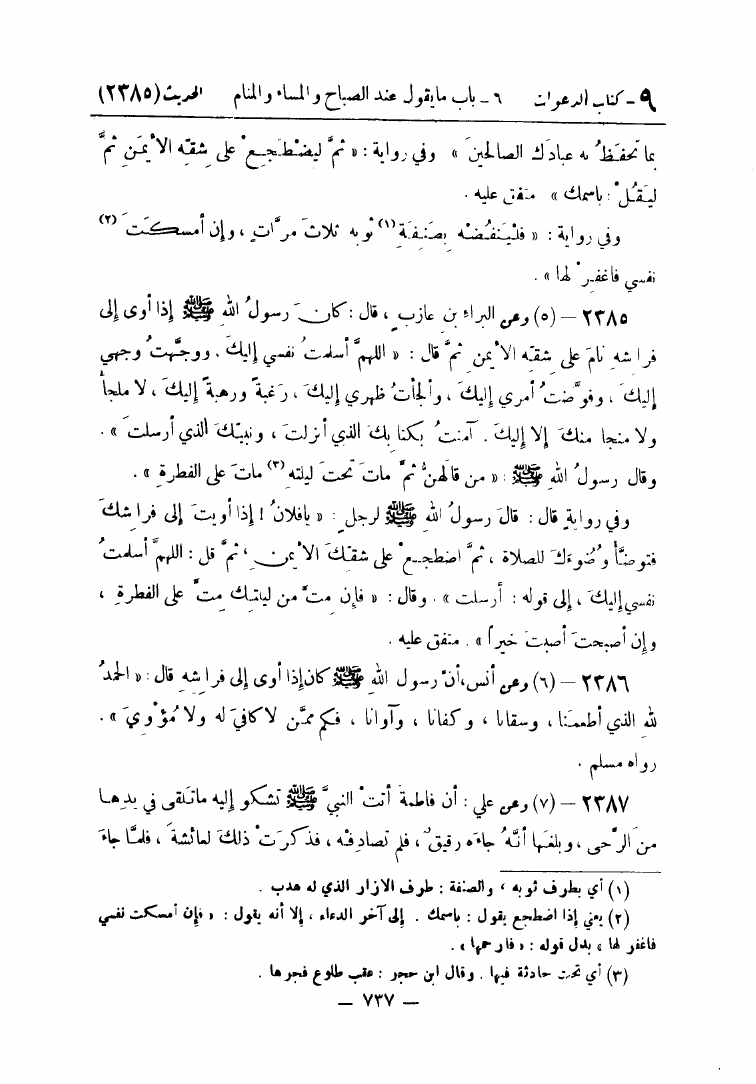 ٩ - كتاب الدعوات ٦ - باب ما يقول عند الصباح والمساء والمنام الحديث (٢٣٨٥)
بما تحفَظُ به عبادَك الصالحينَ » وفي رواية : « ثمَّ ليضْطَجِعْ على شِقِّه الأيْمَنِ ثمَّ
ليَقُلْ : باسمك » متفق عليه .
وفي رواية : « فليَنفُضْه بصَنِفَةِ (١) ثوبه ثلاثَ مرَّاتٍ ، وإن أمسكتَ (٢)
نفسي فاغفِرْ لها » .
٢٣٨٥ – (٥) وعن البراء بن عازبٍ ، قال : كانَ رسولُ اللهِ ﷺ إذا أوى إلى
فراشهِ نامَ على شِقِّه الأيمنِ ثمَّ قال : « اللهمَّ أسلمتُ نفسي إليكَ . ووجَّهتُ وجهي
إليكَ ، وفوَّضتُ أمري إليكَ ، وألجأتُ ظهري إليكَ ، رَغبةً ورهبةً إليكَ ، لا ملجأ
ولا منجا منكَ إلا إليكَ . آمنتُ بكتابِكَ الذي أنزلتَ ، ونبيِّكَ الذي أرسلتَ » .
وقال رسولُ اللهِ ﷺ : « من قالهنَّ ثمَّ ماتَ تحتَ ليلتِه (٣) ماتَ على الفطرةِ » .
وفي روايةٍ قال : قالَ رسولُ اللهِ ﷺ لرجلٍ : « يافلانُ ! إذا أويتَ إلى فراشِكَ
فتوضَّأْ وُضُوءَكَ للصلاة ، ثمَّ اضطجِعْ على شقِّكَ الأيْمنِ ، ثمَّ قل : اللهمَّ أسلمتُ
نفسي إليكَ ، إلى قوله : أرسلت » . وقال : « فإن مِتَّ من ليلتِكَ مِتَّ على الفطرةِ ،
وإن أصبحتَ أصبتَ خيراً » . متفق عليه .
٢٣٨٦ – (٦) وعن أنس، أنَّ رسول اللهِ ﷺ كان إذا أوى إلى فراشِهِ قال : « الحمدُ
لله الذي أطعمَنا ، وسقانا ، وكفانا ، وآوانا ، فكم ممَّن لا كافيَ له ولا مُؤْويَ » .
رواه مسلم .
٢٣٨٧ – (٧) وعن علي : أن فاطمةَ أتتْ النبيَّ ﷺ تشكو إليه ما تلقى في يدِها
من الرَّحى ، وبلغَها أنَّهُ جاءَه رقيقٌ ، فلم تصادِفْه ، فذكَرَتْ ذلكَ لعائشةَ ، فلمَّا جاءَ
(١) أي بطرف ثوبه ، والصنفة : طرف الازار الذي له هدب .
(٢) يعني إذا اضطجع يقول : باسمك . إلى آخر الدعاء ، إلا أنه يقول : « فإن أمسكت نفسي
فاغفر لها » بدل قوله : « فارحمها » .
(٣) أي تحت حادثة فيها . وقال ابن حجر : عقب طلوع فجرها .
– ٧٣٧ –